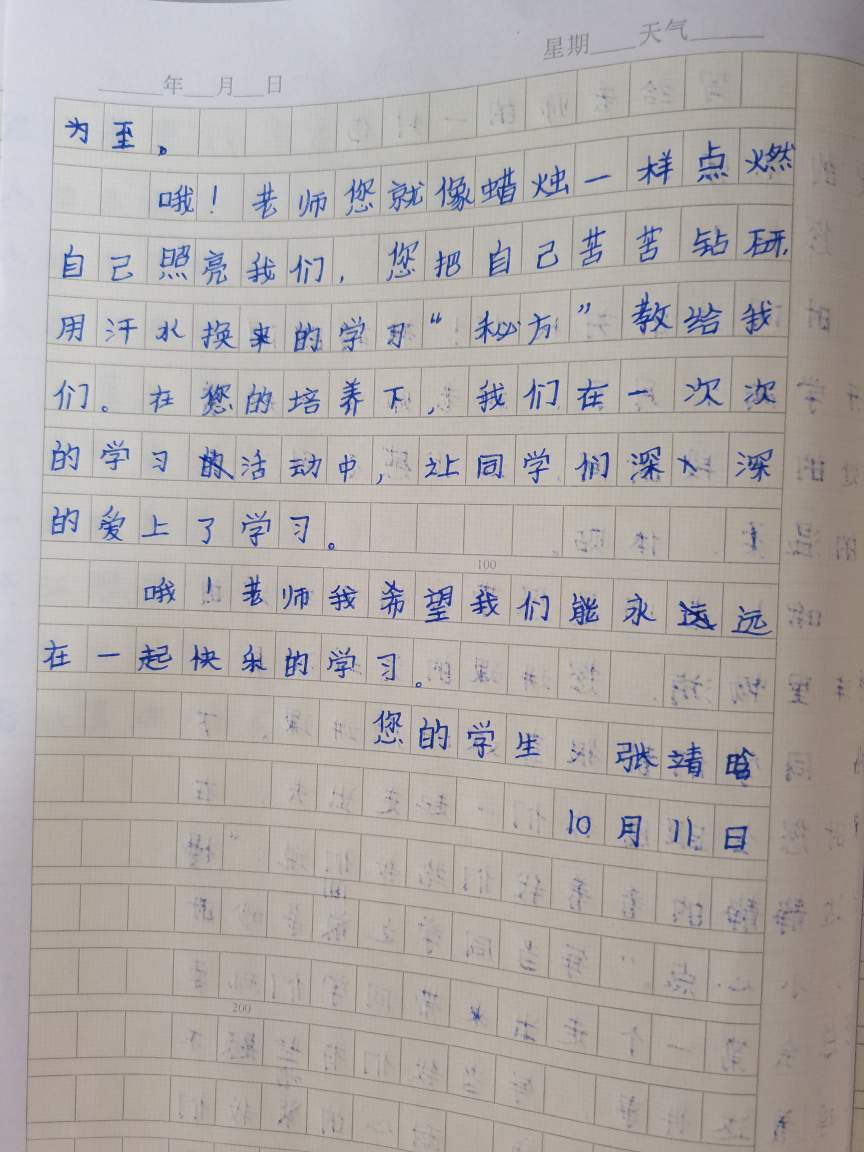 星期 天气
年 月 日
为至。
哦！老师您就像蜡烛一样点燃
自己照亮我们，您把自己苦苦钻研，
用汗水换来的学习“秘方”教给我
们。在您的培养下，我们在一次次
的学习的活动中，让同学们深入深
的爱上了学习。
100
哦！老师我希望我们能永远远
在一起快乐的学习。
您的学生 张靖晗
10月11日
200